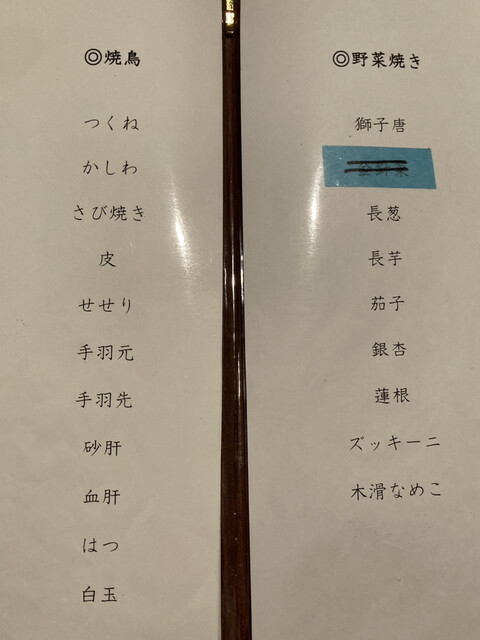 ◎焼鳥
つくね
かしわ
さび焼き
皮
せせり
手羽元
手羽先
砂肝
血肝
はつ
白玉
◎野菜焼き
獅子唐
長葱
長芋
茄子
銀杏
蓮根
ズッキーニ
木滑なめこ